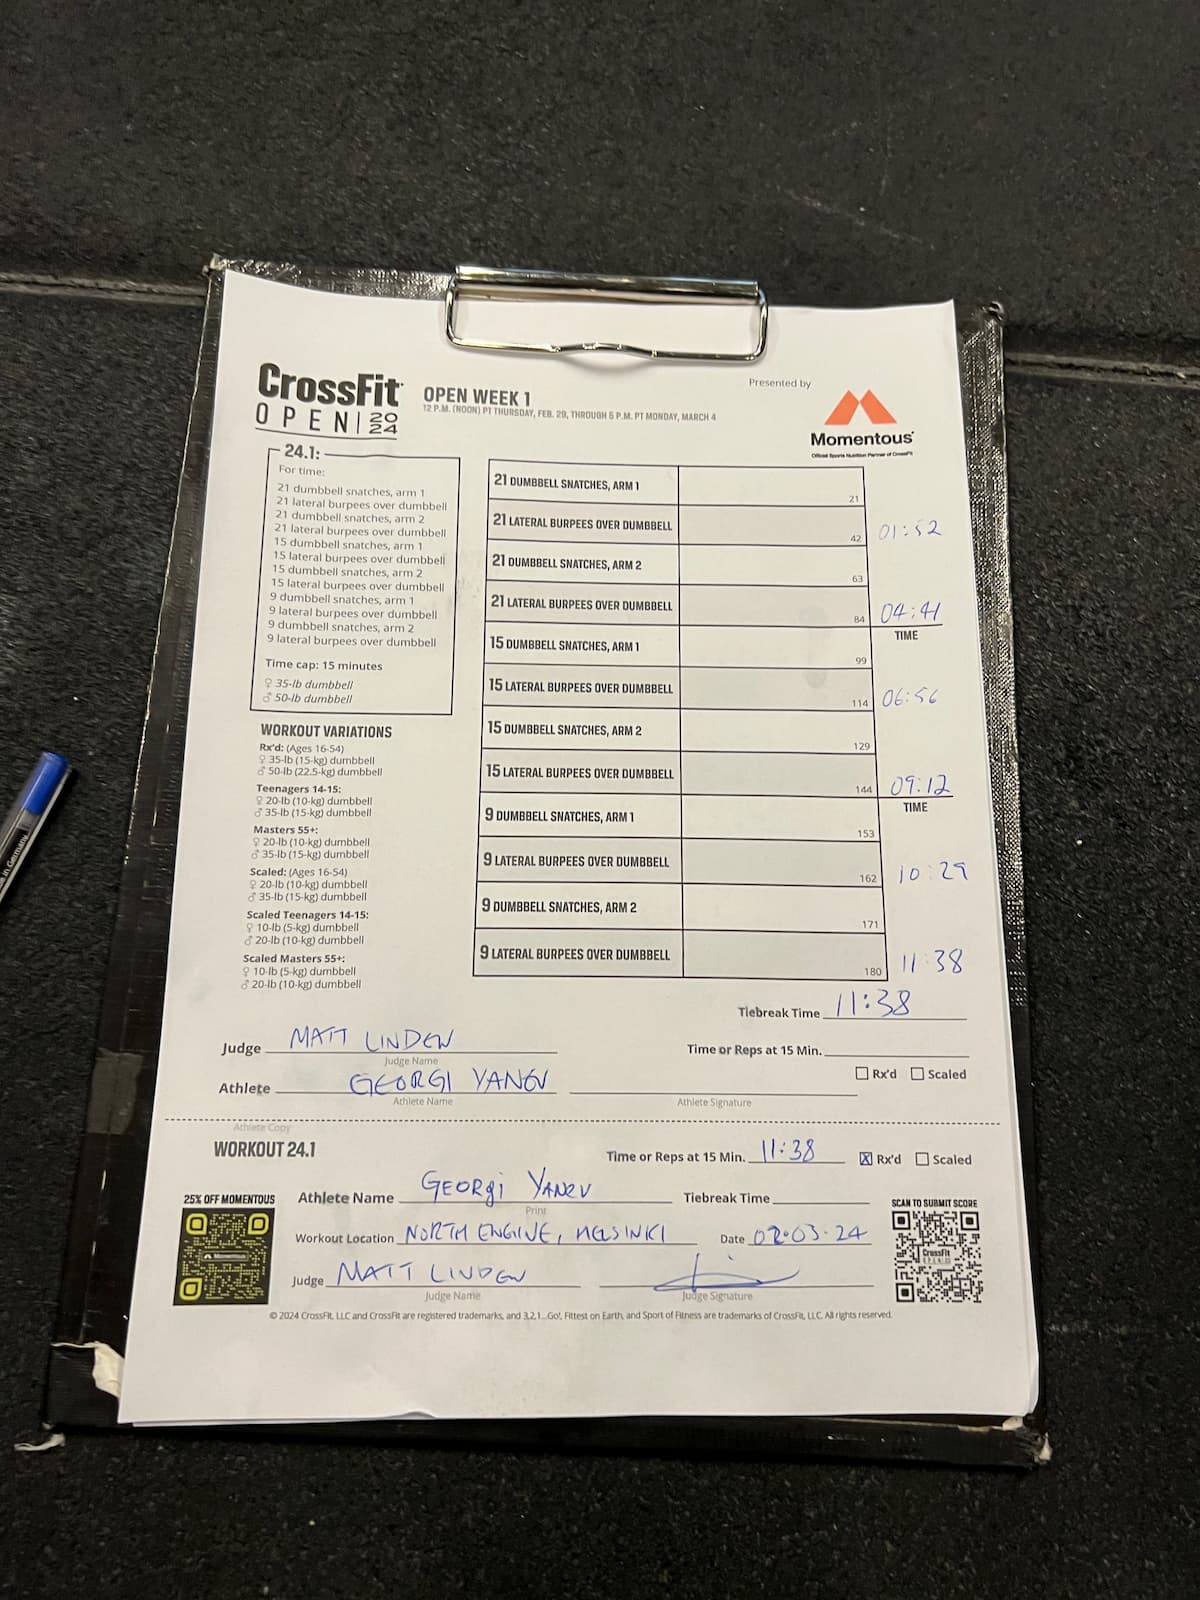 CrossFit
OPEN 2024
OPEN WEEK 1
12 P.M. (NOON) PT THURSDAY, FEB. 29, THROUGH 5 P.M. PT MONDAY, MARCH 4
Presented by
Momentous
Official Sports Nutrition Partner of CrossFit
24.1:
For time:
21 dumbbell snatches, arm 1
21 lateral burpees over dumbbell
21 dumbbell snatches, arm 2
21 lateral burpees over dumbbell
15 dumbbell snatches, arm 1
15 lateral burpees over dumbbell
15 dumbbell snatches, arm 2
15 lateral burpees over dumbbell
9 dumbbell snatches, arm 1
9 lateral burpees over dumbbell
9 dumbbell snatches, arm 2
9 lateral burpees over dumbbell
Time cap: 15 minutes
♀ 35-lb dumbbell
♂ 50-lb dumbbell
WORKOUT VARIATIONS
Rx'd: (Ages 16-54)
♀ 35-lb (15-kg) dumbbell
♂ 50-lb (22.5-kg) dumbbell
Teenagers 14-15:
♀ 20-lb (10-kg) dumbbell
♂ 35-lb (15-kg) dumbbell
Masters 55+:
♀ 20-lb (10-kg) dumbbell
♂ 35-lb (15-kg) dumbbell
Scaled: (Ages 16-54)
♀ 20-lb (10-kg) dumbbell
♂ 35-lb (15-kg) dumbbell
Scaled Teenagers 14-15:
♀ 10-lb (5-kg) dumbbell
♂ 20-lb (10-kg) dumbbell
Scaled Masters 55+:
♀ 10-lb (5-kg) dumbbell
♂ 20-lb (10-kg) dumbbell
21 DUMBBELL SNATCHES, ARM 1 21
21 LATERAL BURPEES OVER DUMBBELL 42 01:52
21 DUMBBELL SNATCHES, ARM 2 63
21 LATERAL BURPEES OVER DUMBBELL 84 04:41
TIME
15 DUMBBELL SNATCHES, ARM 1 99
15 LATERAL BURPEES OVER DUMBBELL 114 06:56
15 DUMBBELL SNATCHES, ARM 2 129
15 LATERAL BURPEES OVER DUMBBELL 144 09:12
TIME
9 DUMBBELL SNATCHES, ARM 1 153
9 LATERAL BURPEES OVER DUMBBELL 162 10:29
9 DUMBBELL SNATCHES, ARM 2 171
9 LATERAL BURPEES OVER DUMBBELL 180 11:38
Tiebreak Time 11:38
Judge MATT LINDEN
Judge Name
Time or Reps at 15 Min.
Rx'd Scaled
Athlete GEORGI YANEV
Athlete Name
Athlete Signature
Athlete Copy
WORKOUT 24.1
Time or Reps at 15 Min. 11:38 Rx'd Scaled
25% OFF MOMENTOUS
Momentous
Athlete Name GEORGI YANEV
Print
Tiebreak Time
SCAN TO SUBMIT SCORE
CrossFit
OPEN
Workout Location NORTH ENGINE, HELSINKI Date 02.03.24
Judge MATT LINDEN
Judge Name
Judge Signature
© 2024 CrossFit, LLC and CrossFit are registered trademarks, and 3,2,1...Go!, Fittest on Earth, and Sport of Fitness are trademarks of CrossFit, LLC. All rights reserved.